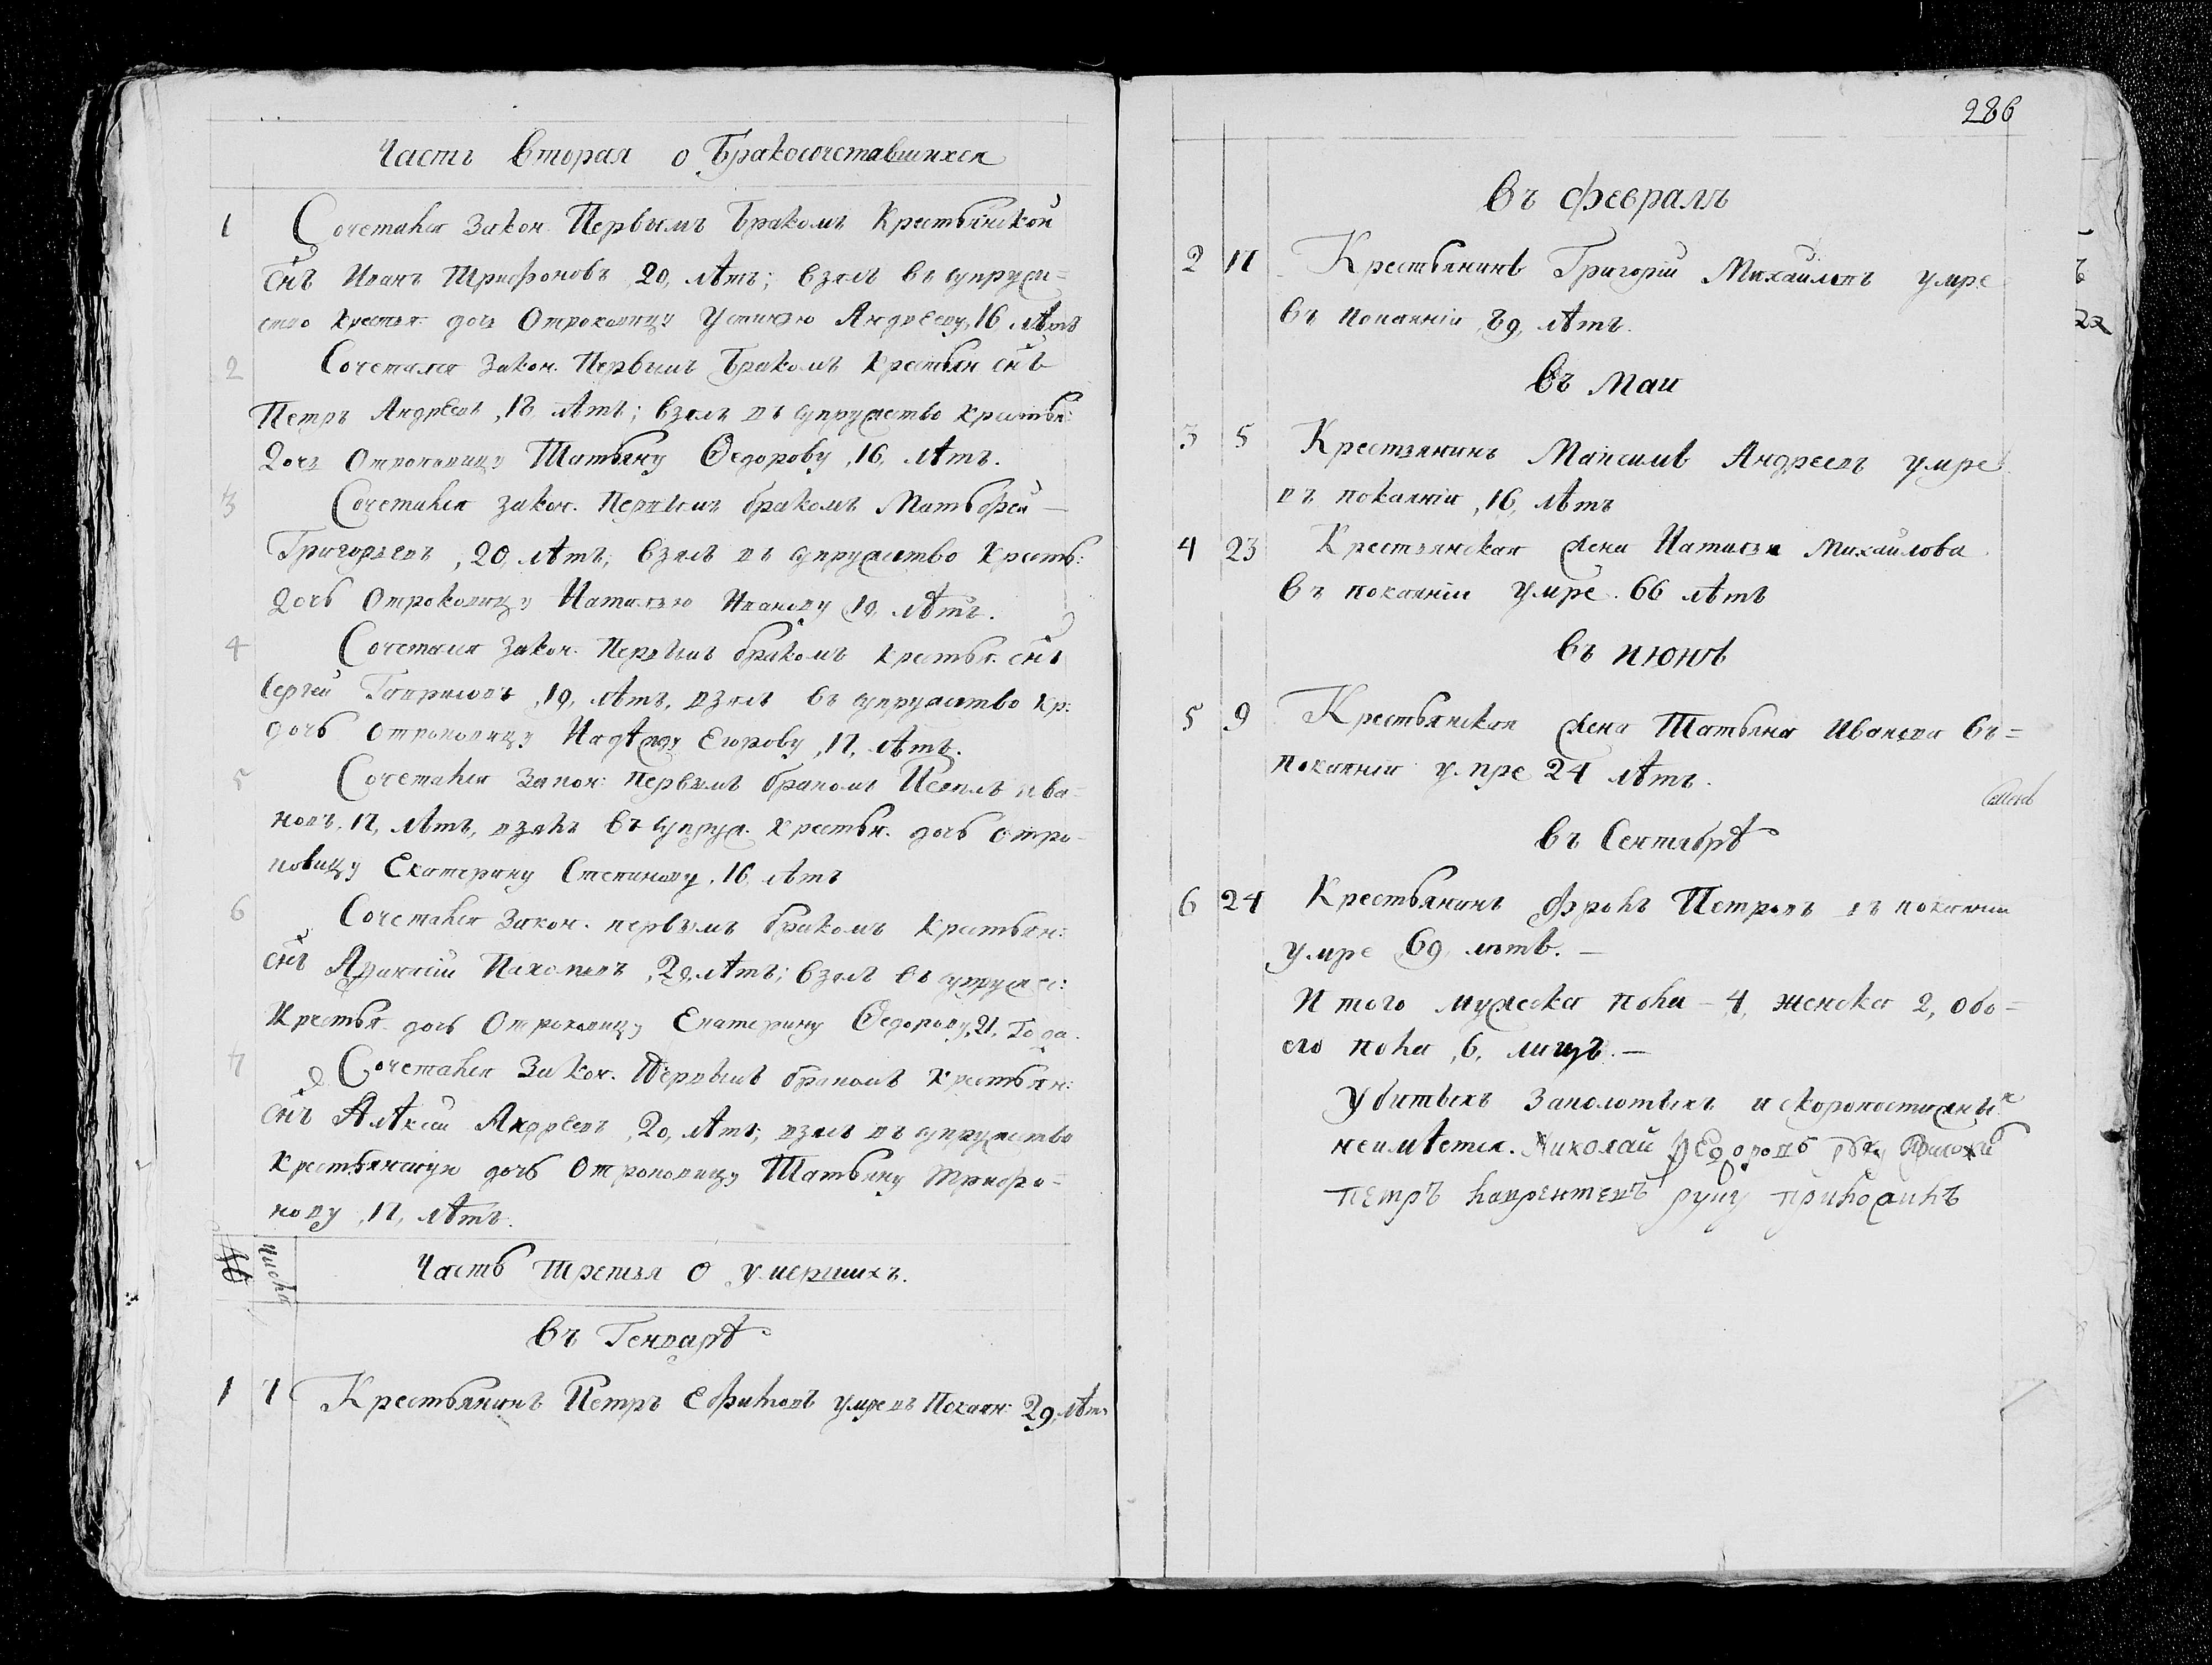 Часть вторая о бракосочетавшихся
1 Сочетался закон. первымъ бракомъ крестьянской
снъ Иванъ Трифоновъ, 20, лѣтъ; взялъ въ супруже=
ство крестья. дочь отроковицу Устинью Андрееву, 16 лѣтъ
2 Сочетался закон. первымъ бракомъ крестьян снъ
Петръ Андреевъ, 18 лѣтъ; взялъ въ супружество крестья:
дочь отроковицу Татьяну Ѳедорову, 16, лѣтъ.
3 Сочетался закон. первымъ бракомъ Матвѳей
Григорьевъ, 20, лѣтъ; взялъ въ супружество кресть:
дочь отроковицу Наталью Иванову 19, лѣтъ.
4 Сочетался закон. первымъ бракомъ крестья. снъ
Сергей Гавриловъ, 19, лѣтъ, взялъ въ супружество кр:
дочь отроковицу Надѣжду Егорову, 17, лѣтъ.
5 Сочетался закон: первымъ браком Ива=
новъ, 17, лѣтъ, взялъ въ супруж. крестья. дочь отро-
ковицу Екатерину Степанову, 16, лѣтъ
6 Сочетался закон. первымъ бракомъ крестьян:
снъ Пахомовъ, 20, лѣтъ; взялъ въ супруже:
крестья. дочь отроковицу Екатерину Ѳедорову, 21, года.
7 Сочетался закон. первымъ бракомъ крестьян:
снъ Алѣксей Андреевъ, 20, лѣтъ, взялъ въ супружество
крестьянскую дочь отроковицу Татьяну Трифо=
нову, 17, лѣтъ.
№ Числа Часть третья о умершихъ.
въ Генварѣ
1 7 Крестьянинъ Петръ Ефимовъ умре въ покаян: 29, лѣтъ
286
въ февралѣ
2 11 Крестьянинъ Григорій Михайловъ умре
въ покаяніи, 89, лѣтъ.
въ маи
3 5 Крестьянинъ Максимъ Андреевъ умре
въ покаяніи, 16, лѣтъ
4 23 Крестьянская жена Наталья Михайлова
въ покаяніи умре. 66 лѣтъ
въ июнѣ
5 9 Крестьянская жена Татьяна Иванова въ=
покаяніи умре 24 лѣтъ.
въ Сентябрѣ
6 24 Крестьянинъ Фролъ Петровъ въ покаяніи
умре, 69, лѣтъ. —
Итого мужеска пола - 4, женска 2, обо=
его пола, 6, лицъ. —
Убитыхъ заколотыхъ и скоропостижных
неимѣется. Николай Ѳедоровъ руку приложи
петръ лаврентевъ руку приложилъ